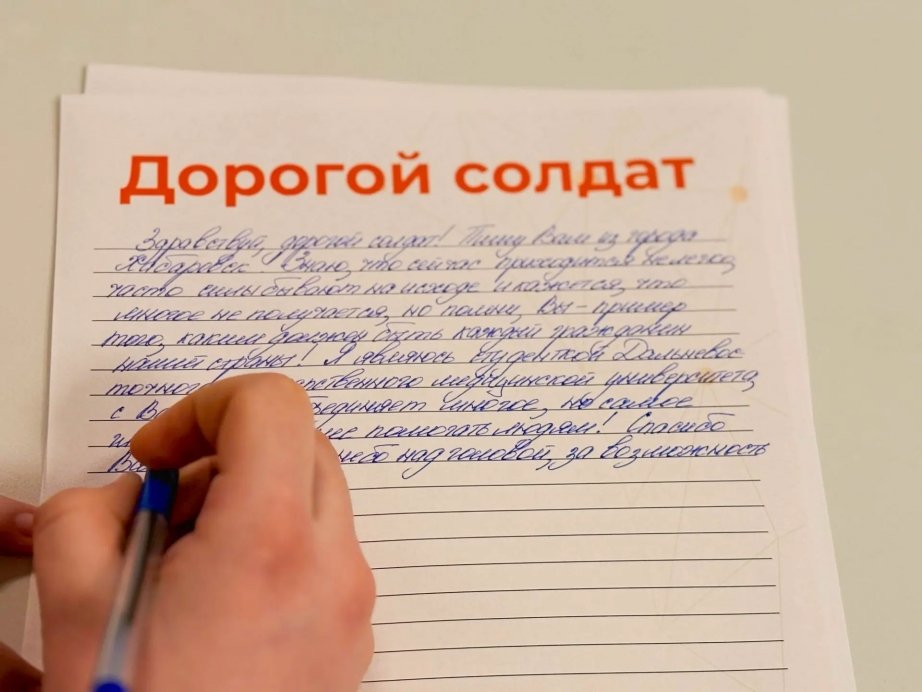 Дорогой солдат
Здравствуй, дорогой солдат! Пишу Вам из города
Хабаровск! Знаю, что сейчас приходится нелегко,
часто силы бывают на исходе и кажется, что
многое не получается, но помни, Вы - пример
того, каким должен быть каждый гражданин
нашей страны! Я являюсь студенткой Дальневос-
точног рственного медицинской университета,
с единяет многое, но самое
помогать людям! Спасибо
небо над головой, за возможность